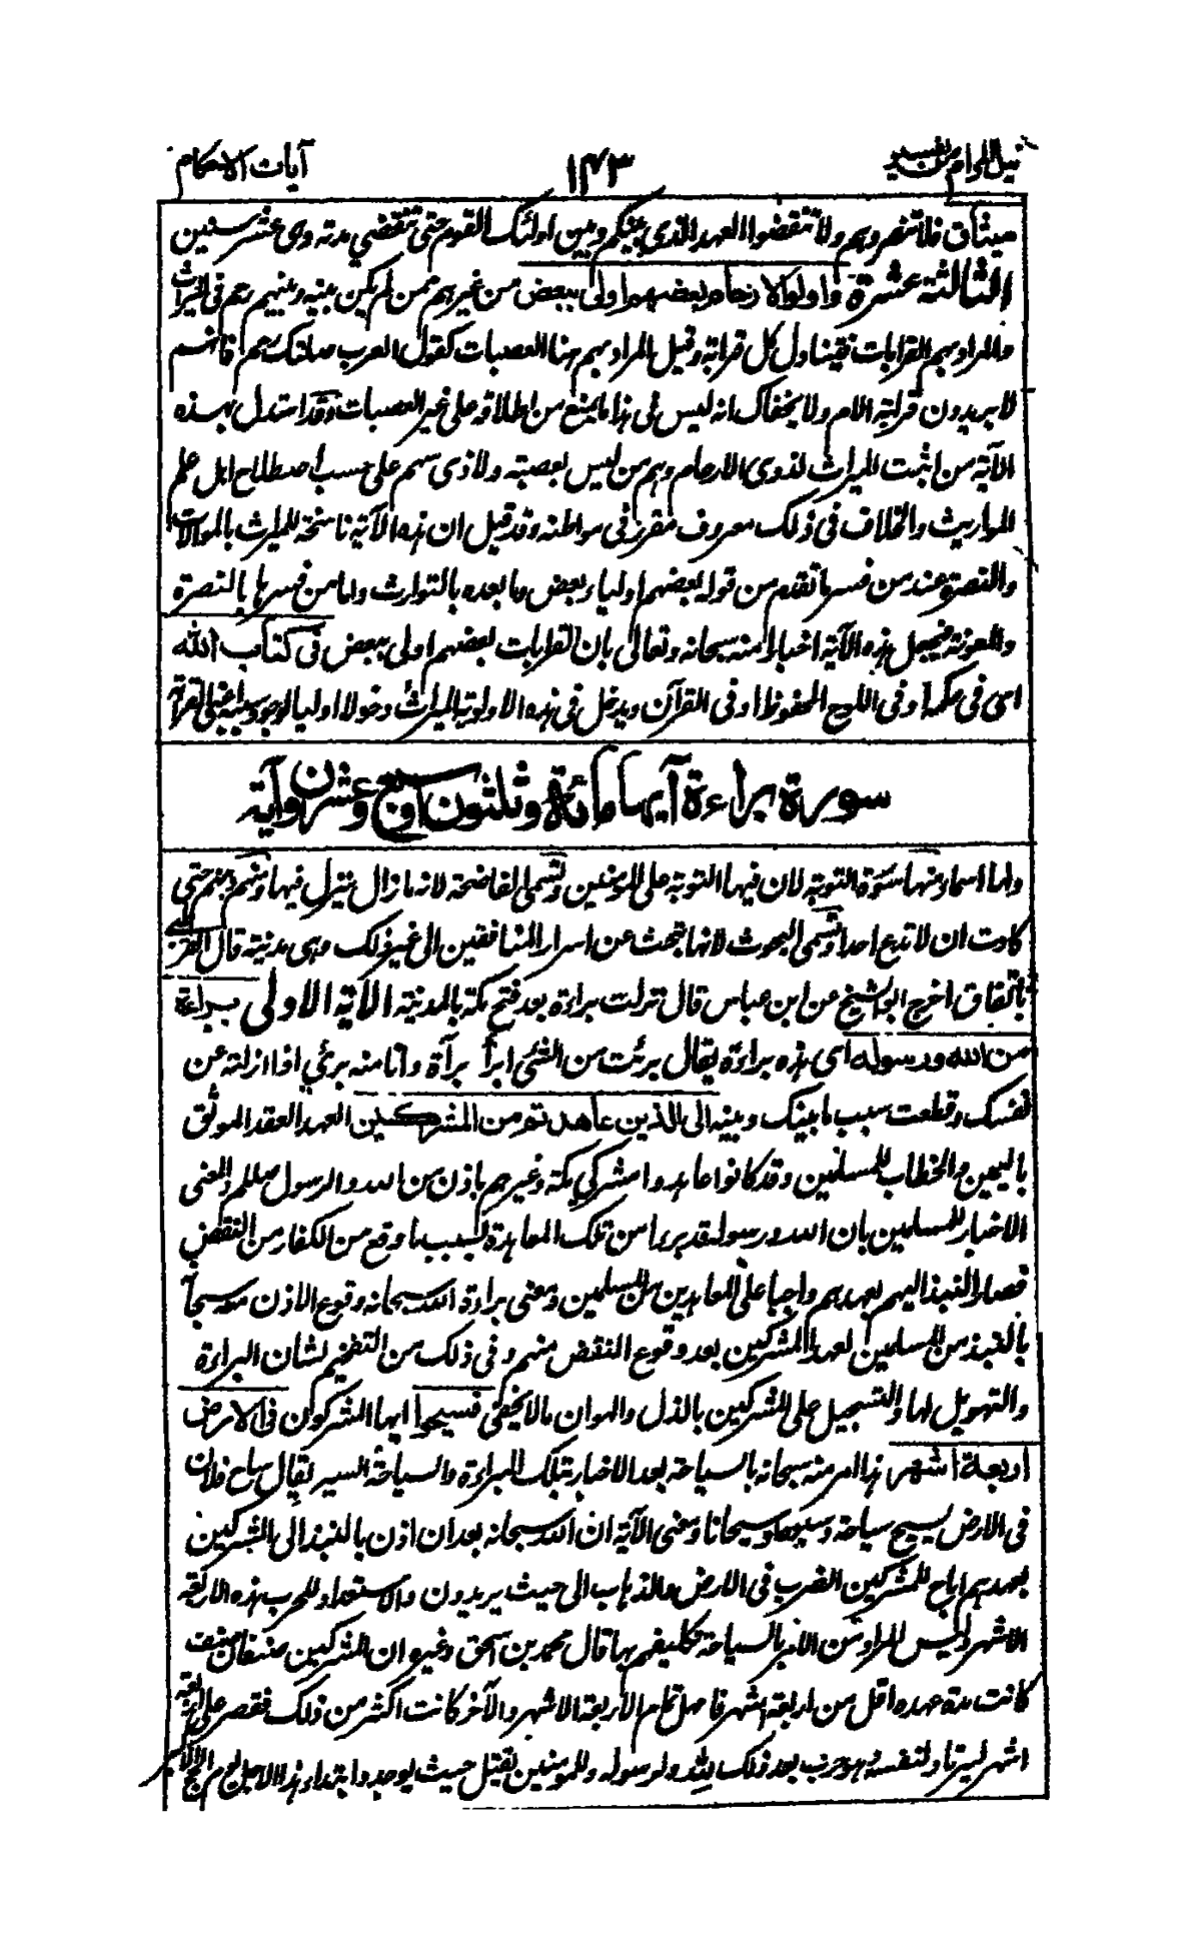 نيل المرام من تفسير
١٤٣
آيات الاحكام
ميثاق فلا تنصروهم ولا تنقضوا العهد الذي بينكم وبين اولئك القوم حتى تنقضي مدته وهى عشر سنين
الثالثة عشرة واولوالارحام بعضهم اولى ببعض من غيرهم ممن لم يكن بينه وبينهم رحم فى الميراث
والمراد بهم القرابات فيتناول كل قرابة وقيل المراد بهم هنا العصبات كقول العرب وصلتك رحم فانهم
لا يريدون قرابة الام ولا يخفاك انه ليس فى هذا ما يمنع من اطلاقه على غير العصبات وقد استدل بهذه
الآية من اثبت الميراث لذوى الارحام وهم من ليس بعصبة ولا ذى سهم على حسب اصطلاح اهل علم
المواريث والخلاف فى ذلك معروف مقرر فى مواطنه وقد قيل ان هذه الآية ناسخة للميراث بالموالات
والنصرة عند من فسر ما تقدم من قوله بعضهم اولياء بعض وما بعده بالتوارث واما من فسرها بالنصرة
والمعونة فيجعل هذه الآية اخبارا منه سبحانه وتعالى بان القرابات بعضهم اولى ببعض فى كتاب الله
اى فى حكمه او فى اللوح المحفوظ او فى القرآن ويدخل فى هذه الاولوية الميراث دخولا اوليا لوجود سببه اعنى القرابة
سورة براءة آيها مائة وثلثون او سبع وعشرون آية
ولها اسماء منها سورة التوبة لان فيها التوبة على المؤمنين وتسمى الفاضحة لانه ما زال ينزل فيها ومنهم ومنهم حتى
كادت ان لا تدع احدا وتسمى البحوث لانها تبحث عن اسرار المنافقين الى غير ذلك وهى مدنية قال القرطبى
باتفاق اخرج ابو الشيخ عن ابن عباس قال نزلت براءة بعد فتح مكة بالمدينة الآية الاولى براءة
من الله ورسوله اى هذه براءة يقال برئت من الشئ ابرأ براءة وانا منه برئ اذا ازلته عن
نفسك وقطعت سبب ما بينك وبينه الى الذين عاهدتم من المشركين العهد العقد الموثق
باليمين والخطاب للمسلمين وقد كانوا عاهدوا مشركي مكة وغيرهم باذن من الله والرسول صلعم والمعنى
الاخبار للمسلمين بان الله ورسوله قد برءا من تلك المعاهدة بسبب ما وقع من الكفار من النقض
فصار النبذ اليهم بعهدهم واجبا على المعاهدين من المسلمين ومعنى براءة الله سبحانه وقوع الاذن منه سبحانه
بالنبذ من المسلمين لعهد المشركين بعد وقوع النقض منهم وفى ذلك من التفخيم لشان البراءة
والتهويل لها والتسجيل على المشركين بالذل والهوان ما لا يخفى فسيحوا ايها المشركون فى الارض
اربعة اشهر هذا امر منه سبحانه بالسياحة بعد الاخبار بتلك البراءة والسياحة السير يقال ساح فلان
فى الارض يسيح سياحة وسيوحا وسيحانا ومعنى الآية ان الله سبحانه بعد ان اذن بالنبذ الى المشركين
بعهدهم اباح للمشركين الضرب فى الارض والذهاب الى حيث يريدون والاستعداد للحرب هذه الاربعة
الاشهر وليس المراد من الامر بالسياحة تكليفهم بها قال محمد بن اسحق وغيره ان المشركين صنفان صنف
كانت مدة عهده اقل من اربعة اشهر فامهل تمام الاربعة الاشهر والآخر كانت اكثر من ذلك فقصر على اربعة
اشهر ليرتاد لنفسه وهو حرب بعد ذلك لله ولرسوله وللمؤمنين يقتل حيث يوجد وابتداء هذا الاجل يوم الحج